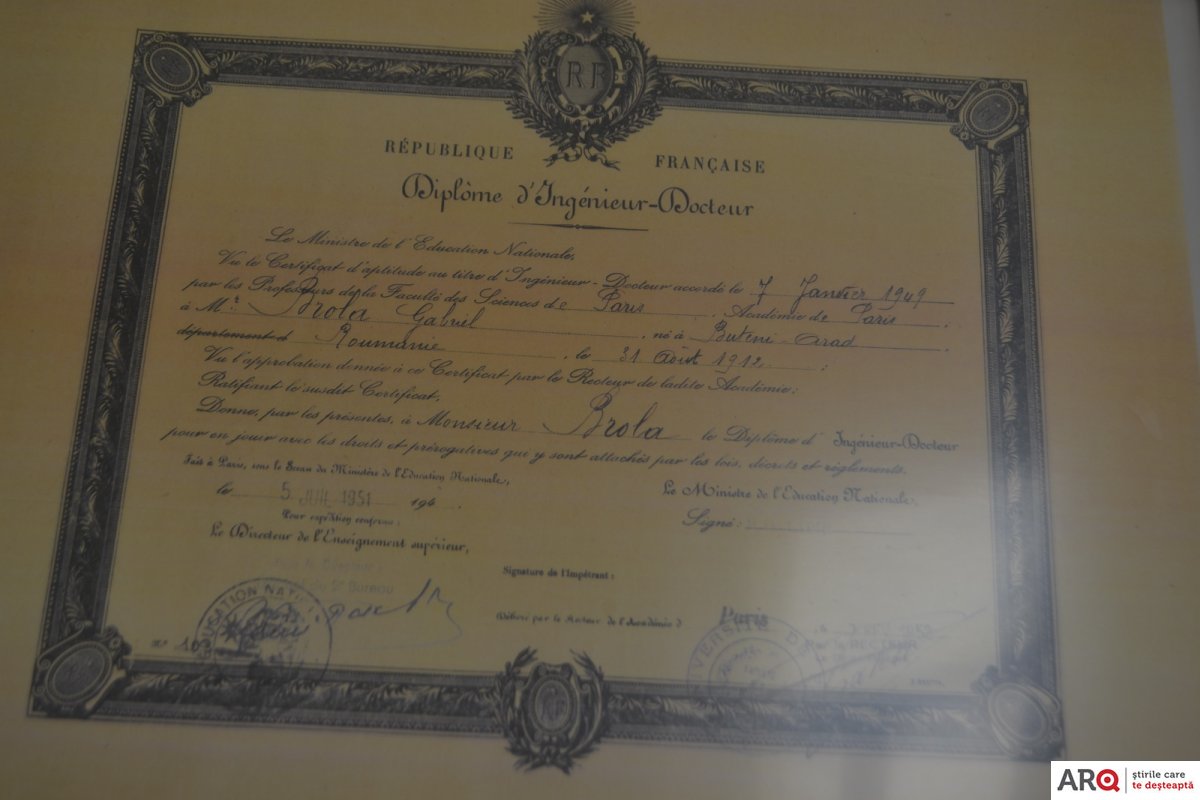 RF
RÉPUBLIQUE FRANÇAISE
Diplôme d'Ingénieur-Docteur
Le Ministre de l'Education Nationale,
Vu le Certificat d'aptitude au titre d'Ingénieur-Docteur accordé le 7 Janvier 1949
par les Professeurs de la Faculté des Sciences de Paris, Académie de Paris,
à Mr. Brola Gabriel, né à Buteni-Arad
département d Roumanie, le 31 Août 1912;
Vu l'approbation donnée à ce Certificat par le Recteur de ladite Académie;
Ratifiant le susdit Certificat,
Donne, par les présentes, à Monsieur Brola le Diplôme d'Ingénieur-Docteur
pour en jouir avec les droits et prérogatives que y sont attachés par les lois, décrets et règlements.
Fait à Paris, sous le Sceau du Ministère de l'Education Nationale,
le 5 JUIL 1951 194
Le Ministre de l'Education Nationale,
Signé:
Pour expédition conforme:
Le Directeur de l'Enseignement supérieur,
2e Bureau
Signature de l'Impétrant:
Délivré par le Recteur de l'Académie d Paris
ARQ știrile care
te deșteaptă